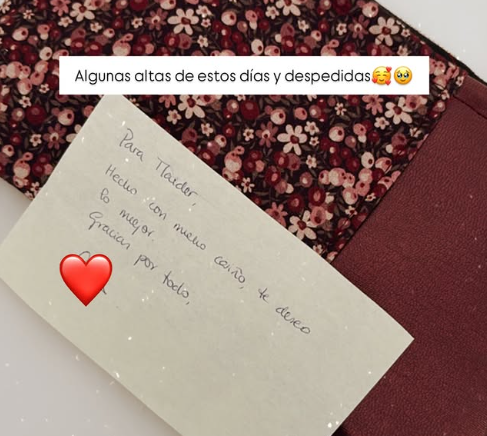 Algunas altas de estos días y despedidas🥰🥹
Para Maider,
Hecho con mucho cariño, te deseo
lo mejor.
Gracias por todo,